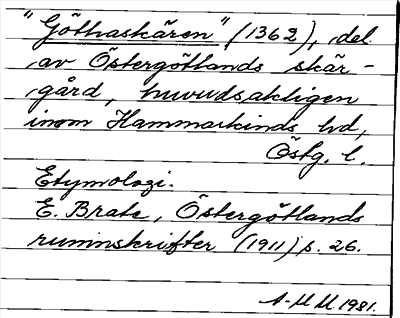 "Göthaskären" (1362), del
av Östergötlands skär-
gård, huvudsakligen
inom Hammarkinds hd,
Östg. l.
Etymologi.
E. Brate, Östergötlands
runinskrifter (1911) s. 26.
A-M M 1981.